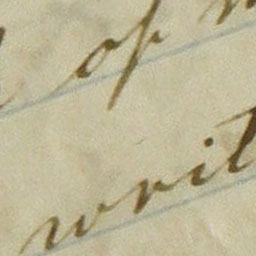 of
writ